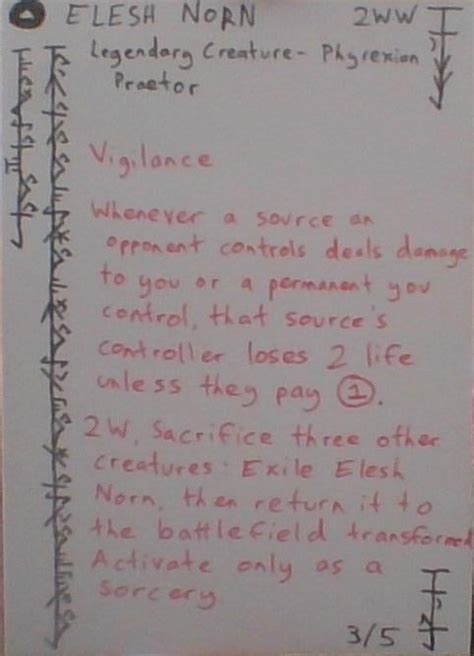 ELESH NORN 2WW
Legendary Creature - Phyrexian
Praetor
Vigilance
Whenever a source an
opponent controls deals damage
to you or a permanent you
control, that source's
controller loses 2 life
unless they pay 1.
2W, Sacrifice three other
creatures: Exile Elesh
Norn, then return it to
the battlefield transformed
Activate only as a
sorcery
3/5